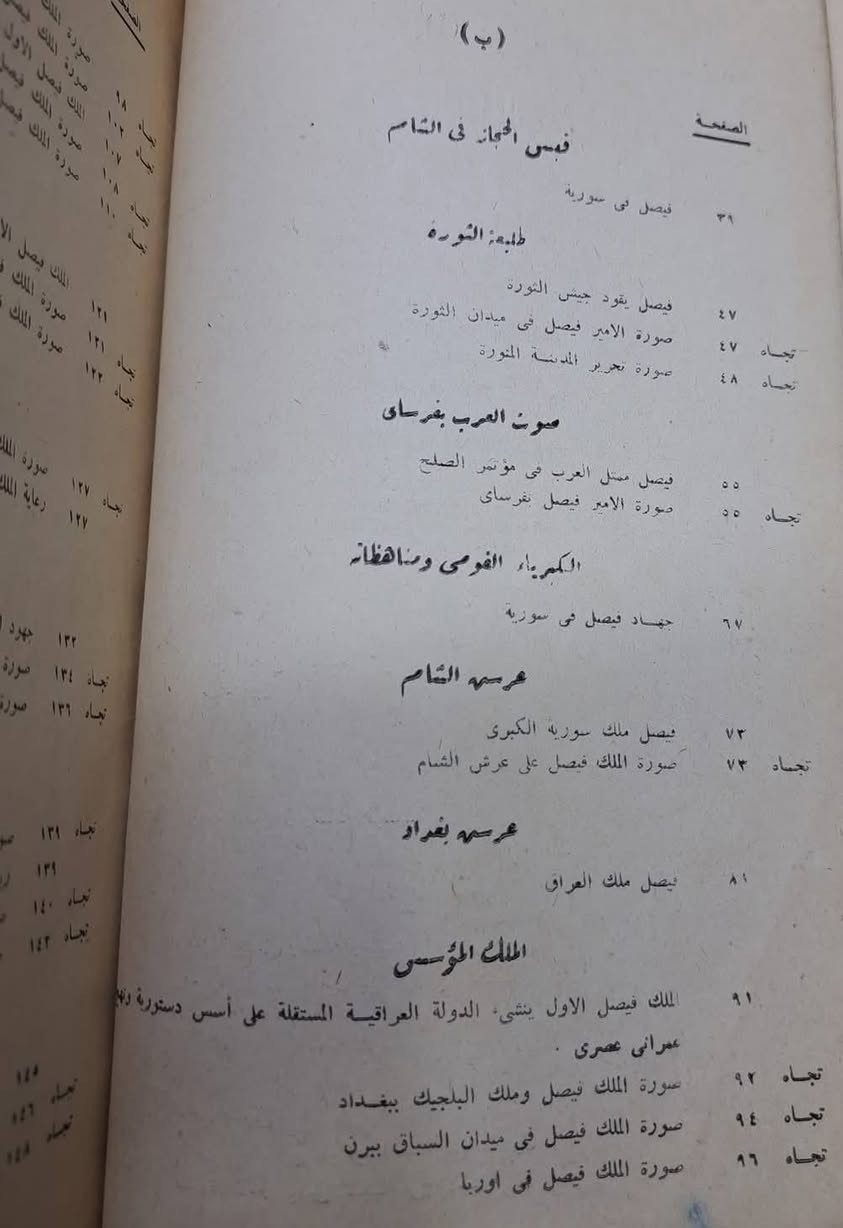 (ب)
الصفحة
قبس الحجاز في الشام
٣٩ فيصل في سورية
طليعة الثورة
٤٧ فيصل يقود جيش الثورة
تجاه ٤٧ صورة الامير فيصل في ميدان الثورة
تجاه ٤٨ صورة تحرير المدينة المنورة
صوت العرب بفرساى
٥٥ فيصل ممثل العرب في مؤتمر الصلح
تجاه ٥٥ صورة الامير فيصل بفرساى
الكبرياء القومى ومناهظاته
٦٧ جهاد فيصل في سورية
عرش الشام
٧٣ فيصل ملك سورية الكبرى
تجاه ٧٣ صورة الملك فيصل على عرش الشام
عرش بغداد
٨١ فيصل ملك العراق
الملك المؤسس
٩١ الملك فيصل الاول ينشىء الدولة العراقية المستقلة على أسس دستورية
عمرانى عصرى .
تجاه ٩٢ صورة الملك فيصل وملك البلجيك ببغداد
تجاه ٩٤ صورة الملك فيصل في ميدان السباق ببرن
تجاه ٩٦ صورة الملك فيصل في اوربا
تجاه ٩٨ صورة
تجاه ١٠٢ صورة الملك
١٠٧ الملك فيصل الاول
تجاه ١٠٨ صورة الملك فيصل
تجاه ١١٠ صورة الملك فيصل
١٢١ الملك فيصل
تجاه ١٢١ صورة الملك
تجاه ١٢٢ صورة الملك
تجاه ١٢٧ صورة
١٢٧ رعاية الملك
١٣٢ جهود
تجاه ١٣٤ صورة
تجاه ١٣٦ صورة
تجاه ١٣٩
١٣٩
تجاه ١٤٠
تجاه ١٤٢
١٤٥
تجاه ١٤٦
تجاه ١٤٨